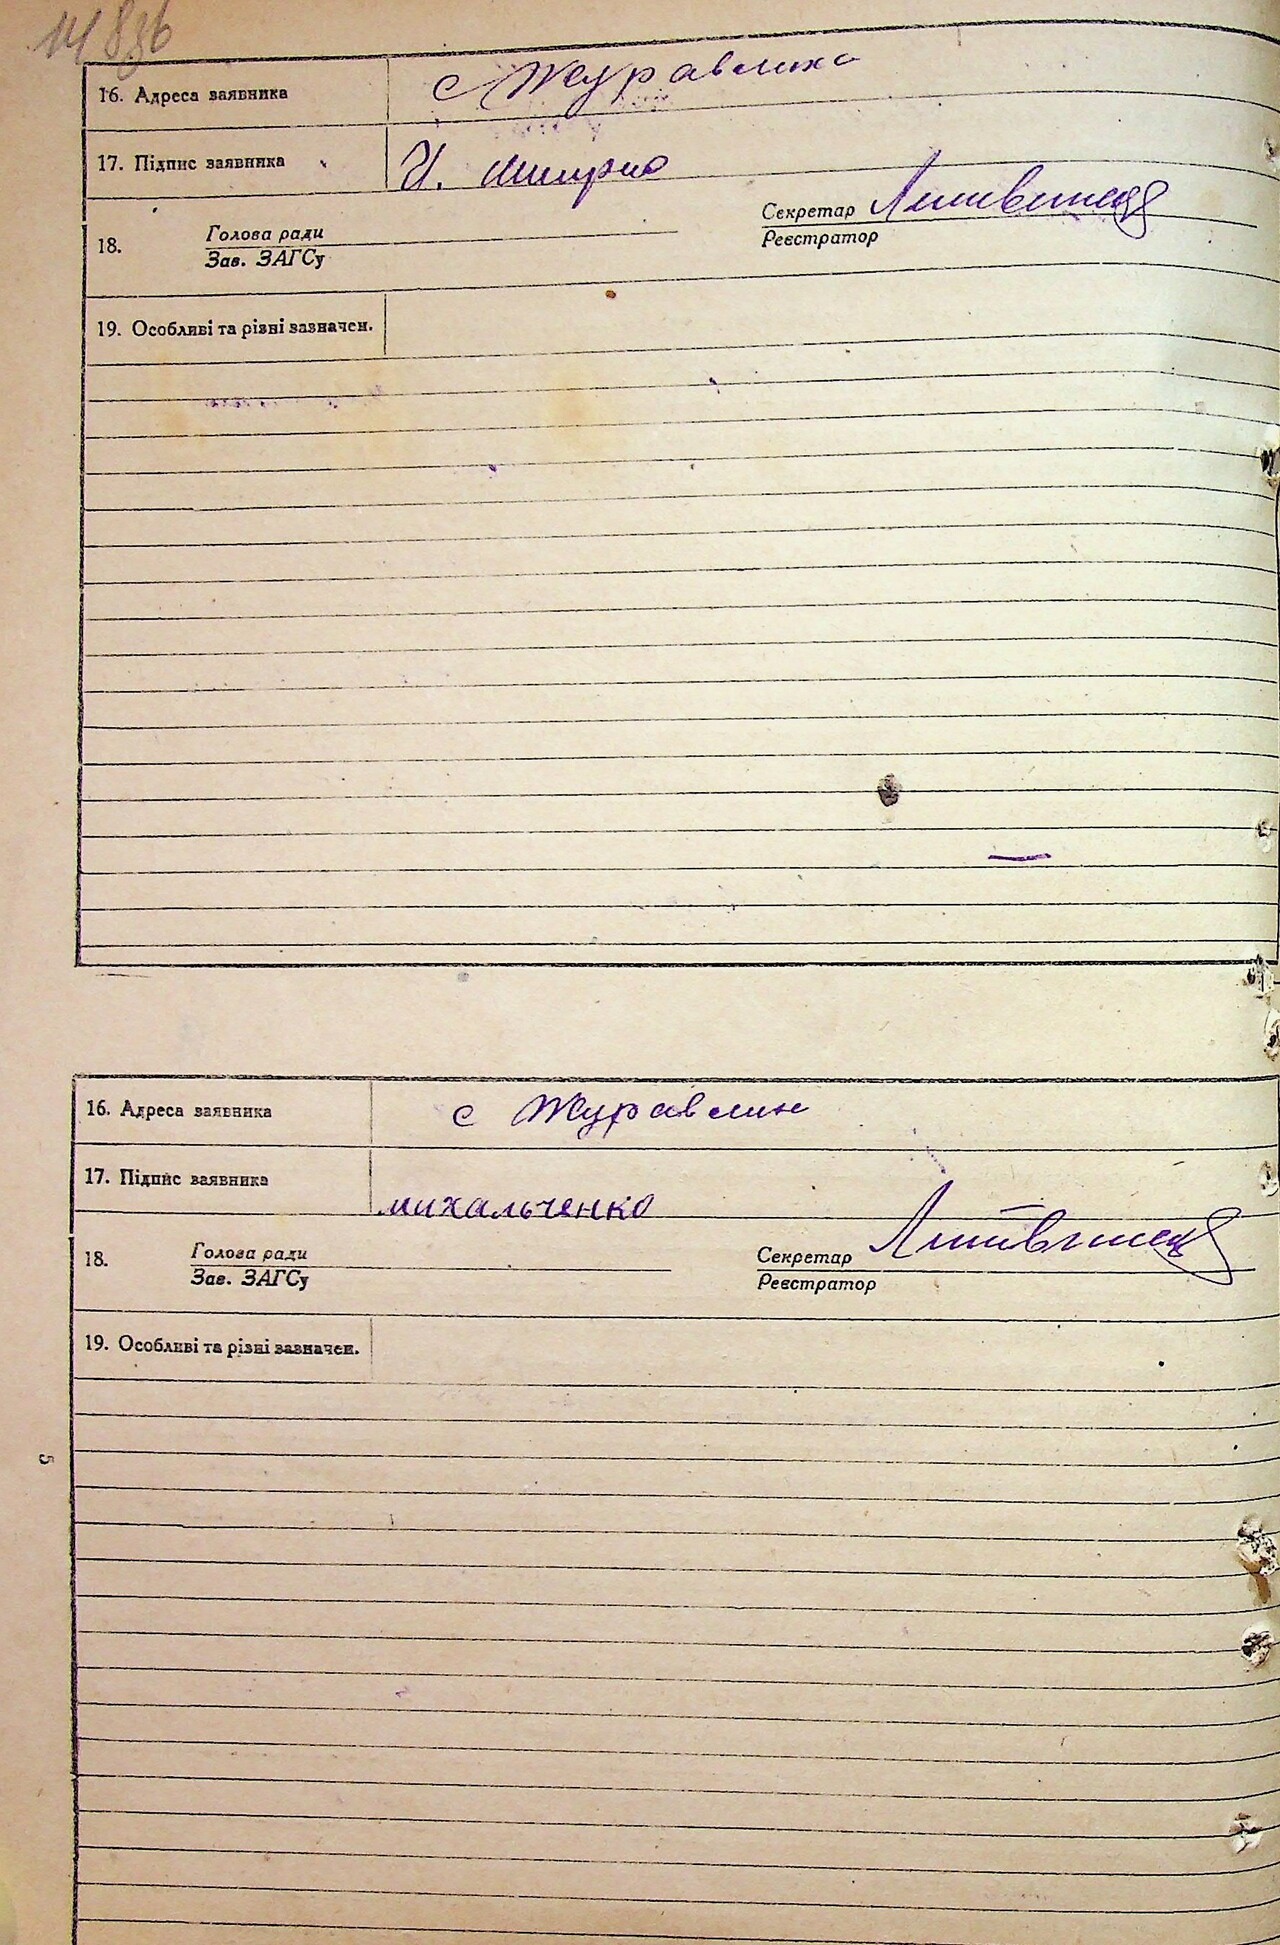 16. Адреса заявника с Журавлиха
17. Підпис заявника И.
18. Голова ради Секретар Литвинец
Зав. ЗАГСу Реєстратор
19. Особливі та різні зазначен.
16. Адреса заявника с Журавлих
17. Підпис заявника михальченко
18. Голова ради Секретар Литвинец
Зав. ЗАГСу Реєстратор
19. Особливі та різні зазначен.
5